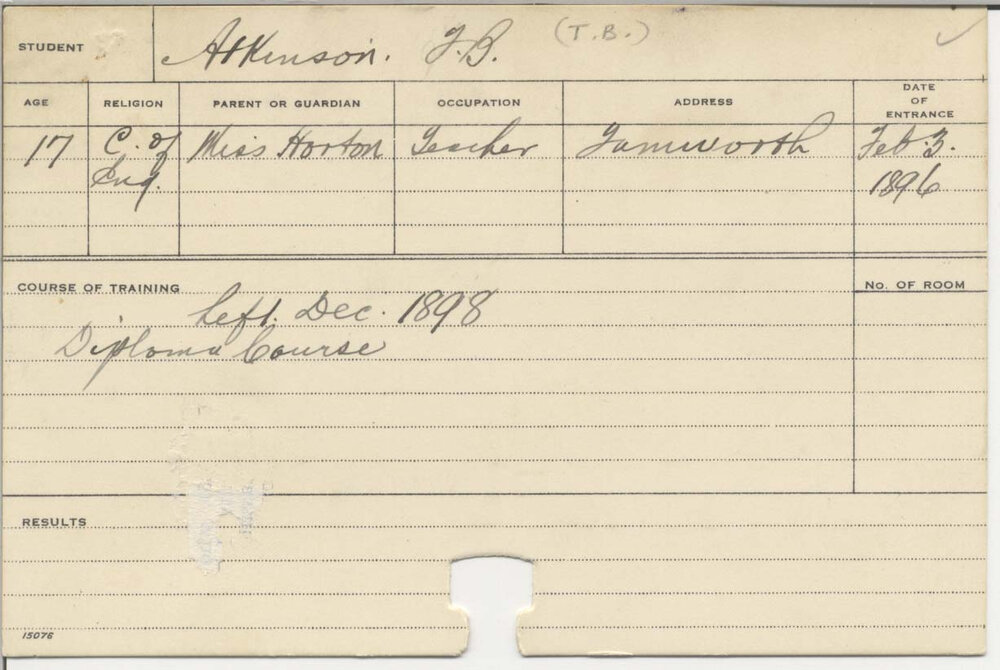 STUDENT Atkinson. T.B. (T.B.)
AGE RELIGION PARENT OR GUARDIAN OCCUPATION ADDRESS DATE OF ENTRANCE
17 C. of Miss Horton Teacher Tamworth Feb. 3.
Eng. 1896
COURSE OF TRAINING No. OF ROOM
Left. Dec. 1898
Diploma Course
RESULTS
15076